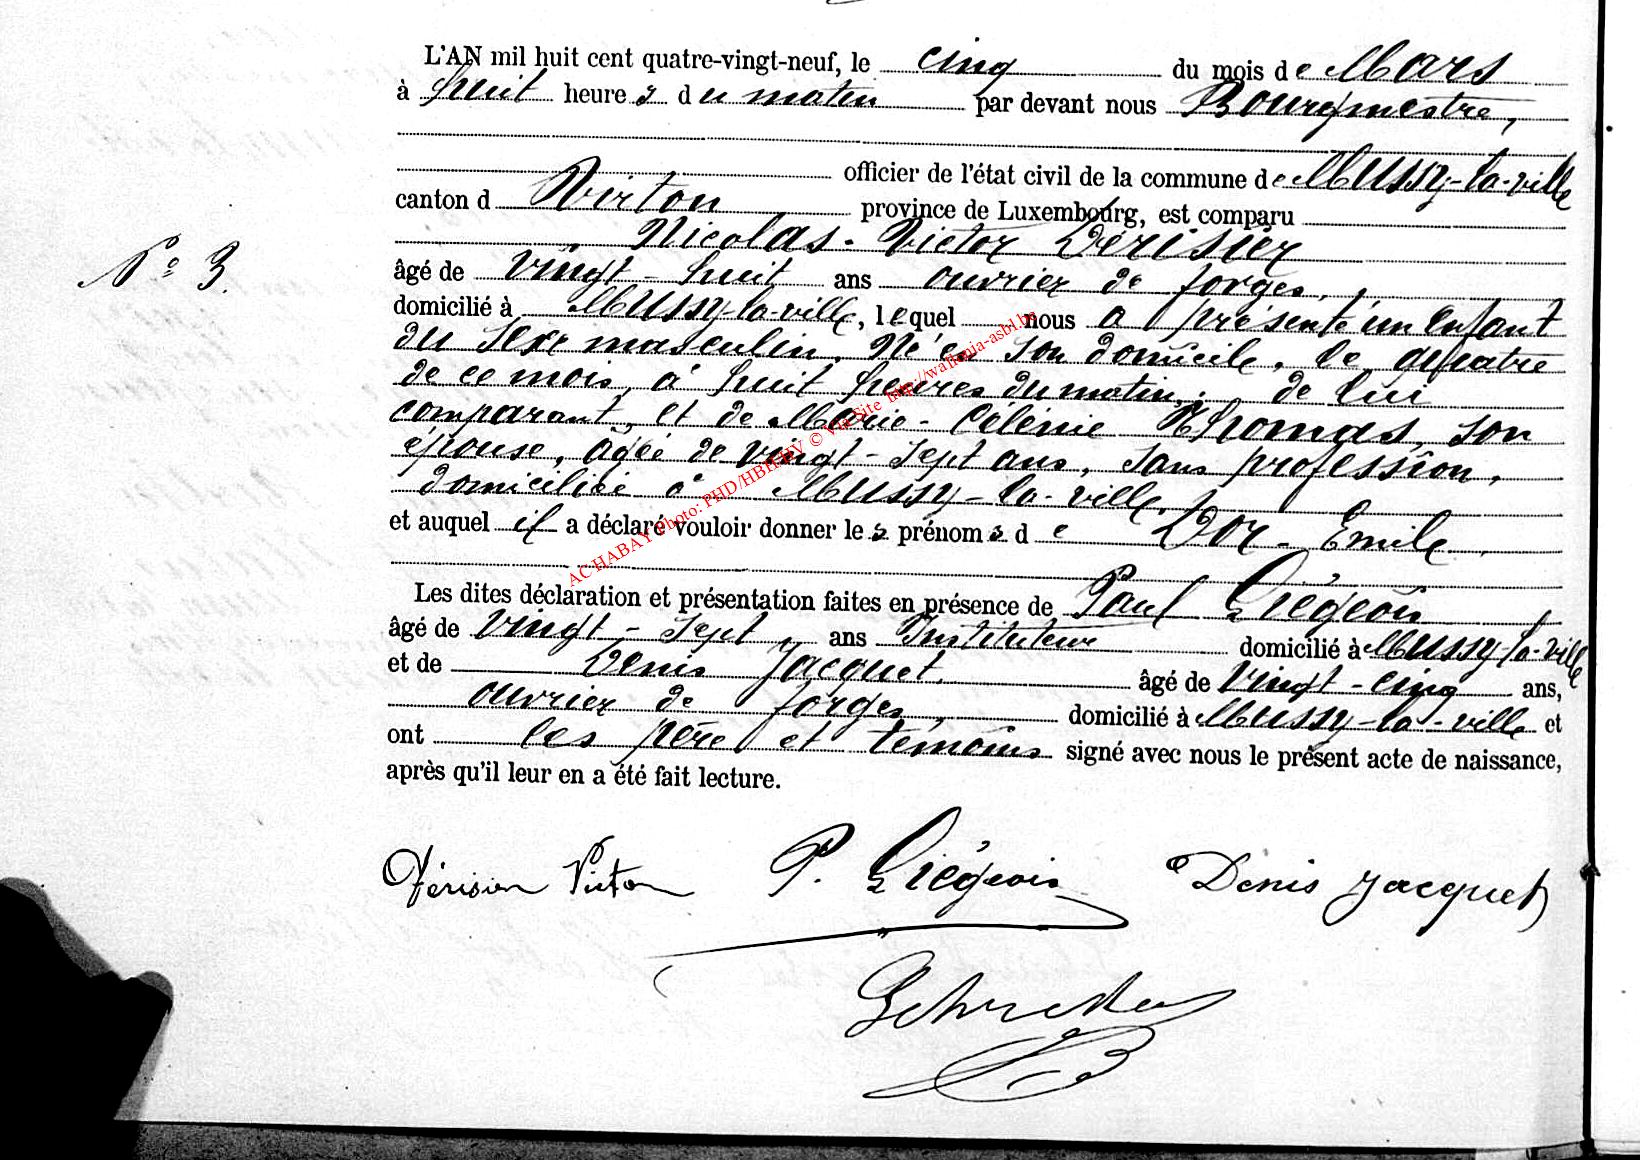 L'AN mil huit cent quatre-vingt-neuf, le cinq du mois de Mars
à huit heures du matin par devant nous Bourgmestre,
officier de l'état civil de la commune de Mussy-la-ville
canton d Virton province de Luxembourg, est comparu
Nicolas-Victor Dérisier
N° 3.
âgé de vingt-huit ans ouvrier de forges,
domicilié à Mussy-la-ville, lequel nous a présenté un enfant
du sexe masculin, Né en son domicile, le quatre
de ce mois, à huit heures du matin, de lui
comparant, et de Marie-Célénie Thomas, son
épouse, âgée de vingt-sept ans, sans profession,
domiciliée à Mussy-la-ville,
et auquel il a déclaré vouloir donner les prénoms de Dor-Emile
AC HABAY Photo: PHD/HBH/HV © Via Site http://wallonia-asbl.be
Les dites déclaration et présentation faites en présence de Paul Liégeois
âgé de vingt-sept ans Instituteur domicilié à Mussy-la-ville
et de Denis Jacquet, âgé de vingt-cinq ans,
ouvrier de forges, domicilié à Mussy-la-ville et
ont les père et témoins signé avec nous le présent acte de naissance,
après qu'il leur en a été fait lecture.
Dérisier Victor P. Liégeois Denis Jacquet